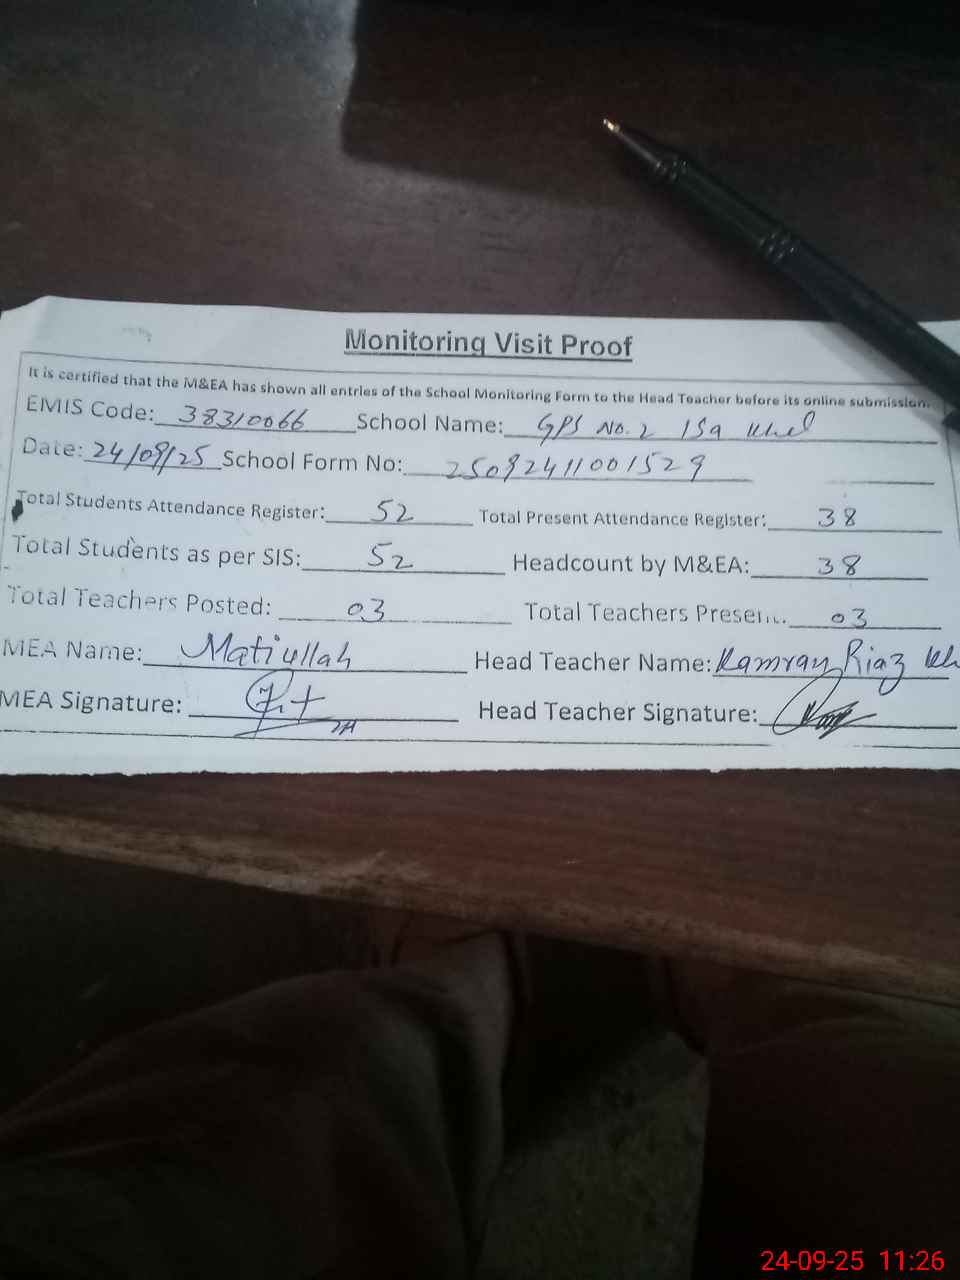 Monitoring Visit Proof
It is certified that the M&EA has shown all entries of the School Monitoring Form to the Head Teacher before its online submission.
EMIS Code: 38310066 School Name: GPS No. 2 Isa Khel
Date: 24/09/25 School Form No: 25092411001529
Total Students Attendance Register: 52 Total Present Attendance Register: 38
Total Students as per SIS: 52 Headcount by M&EA: 38
Total Teachers Posted: 03 Total Teachers Present: 03
MEA Name: Matiullah Head Teacher Name: Kamran Riaz Kh
MEA Signature: Head Teacher Signature:
24-09-25 11:26